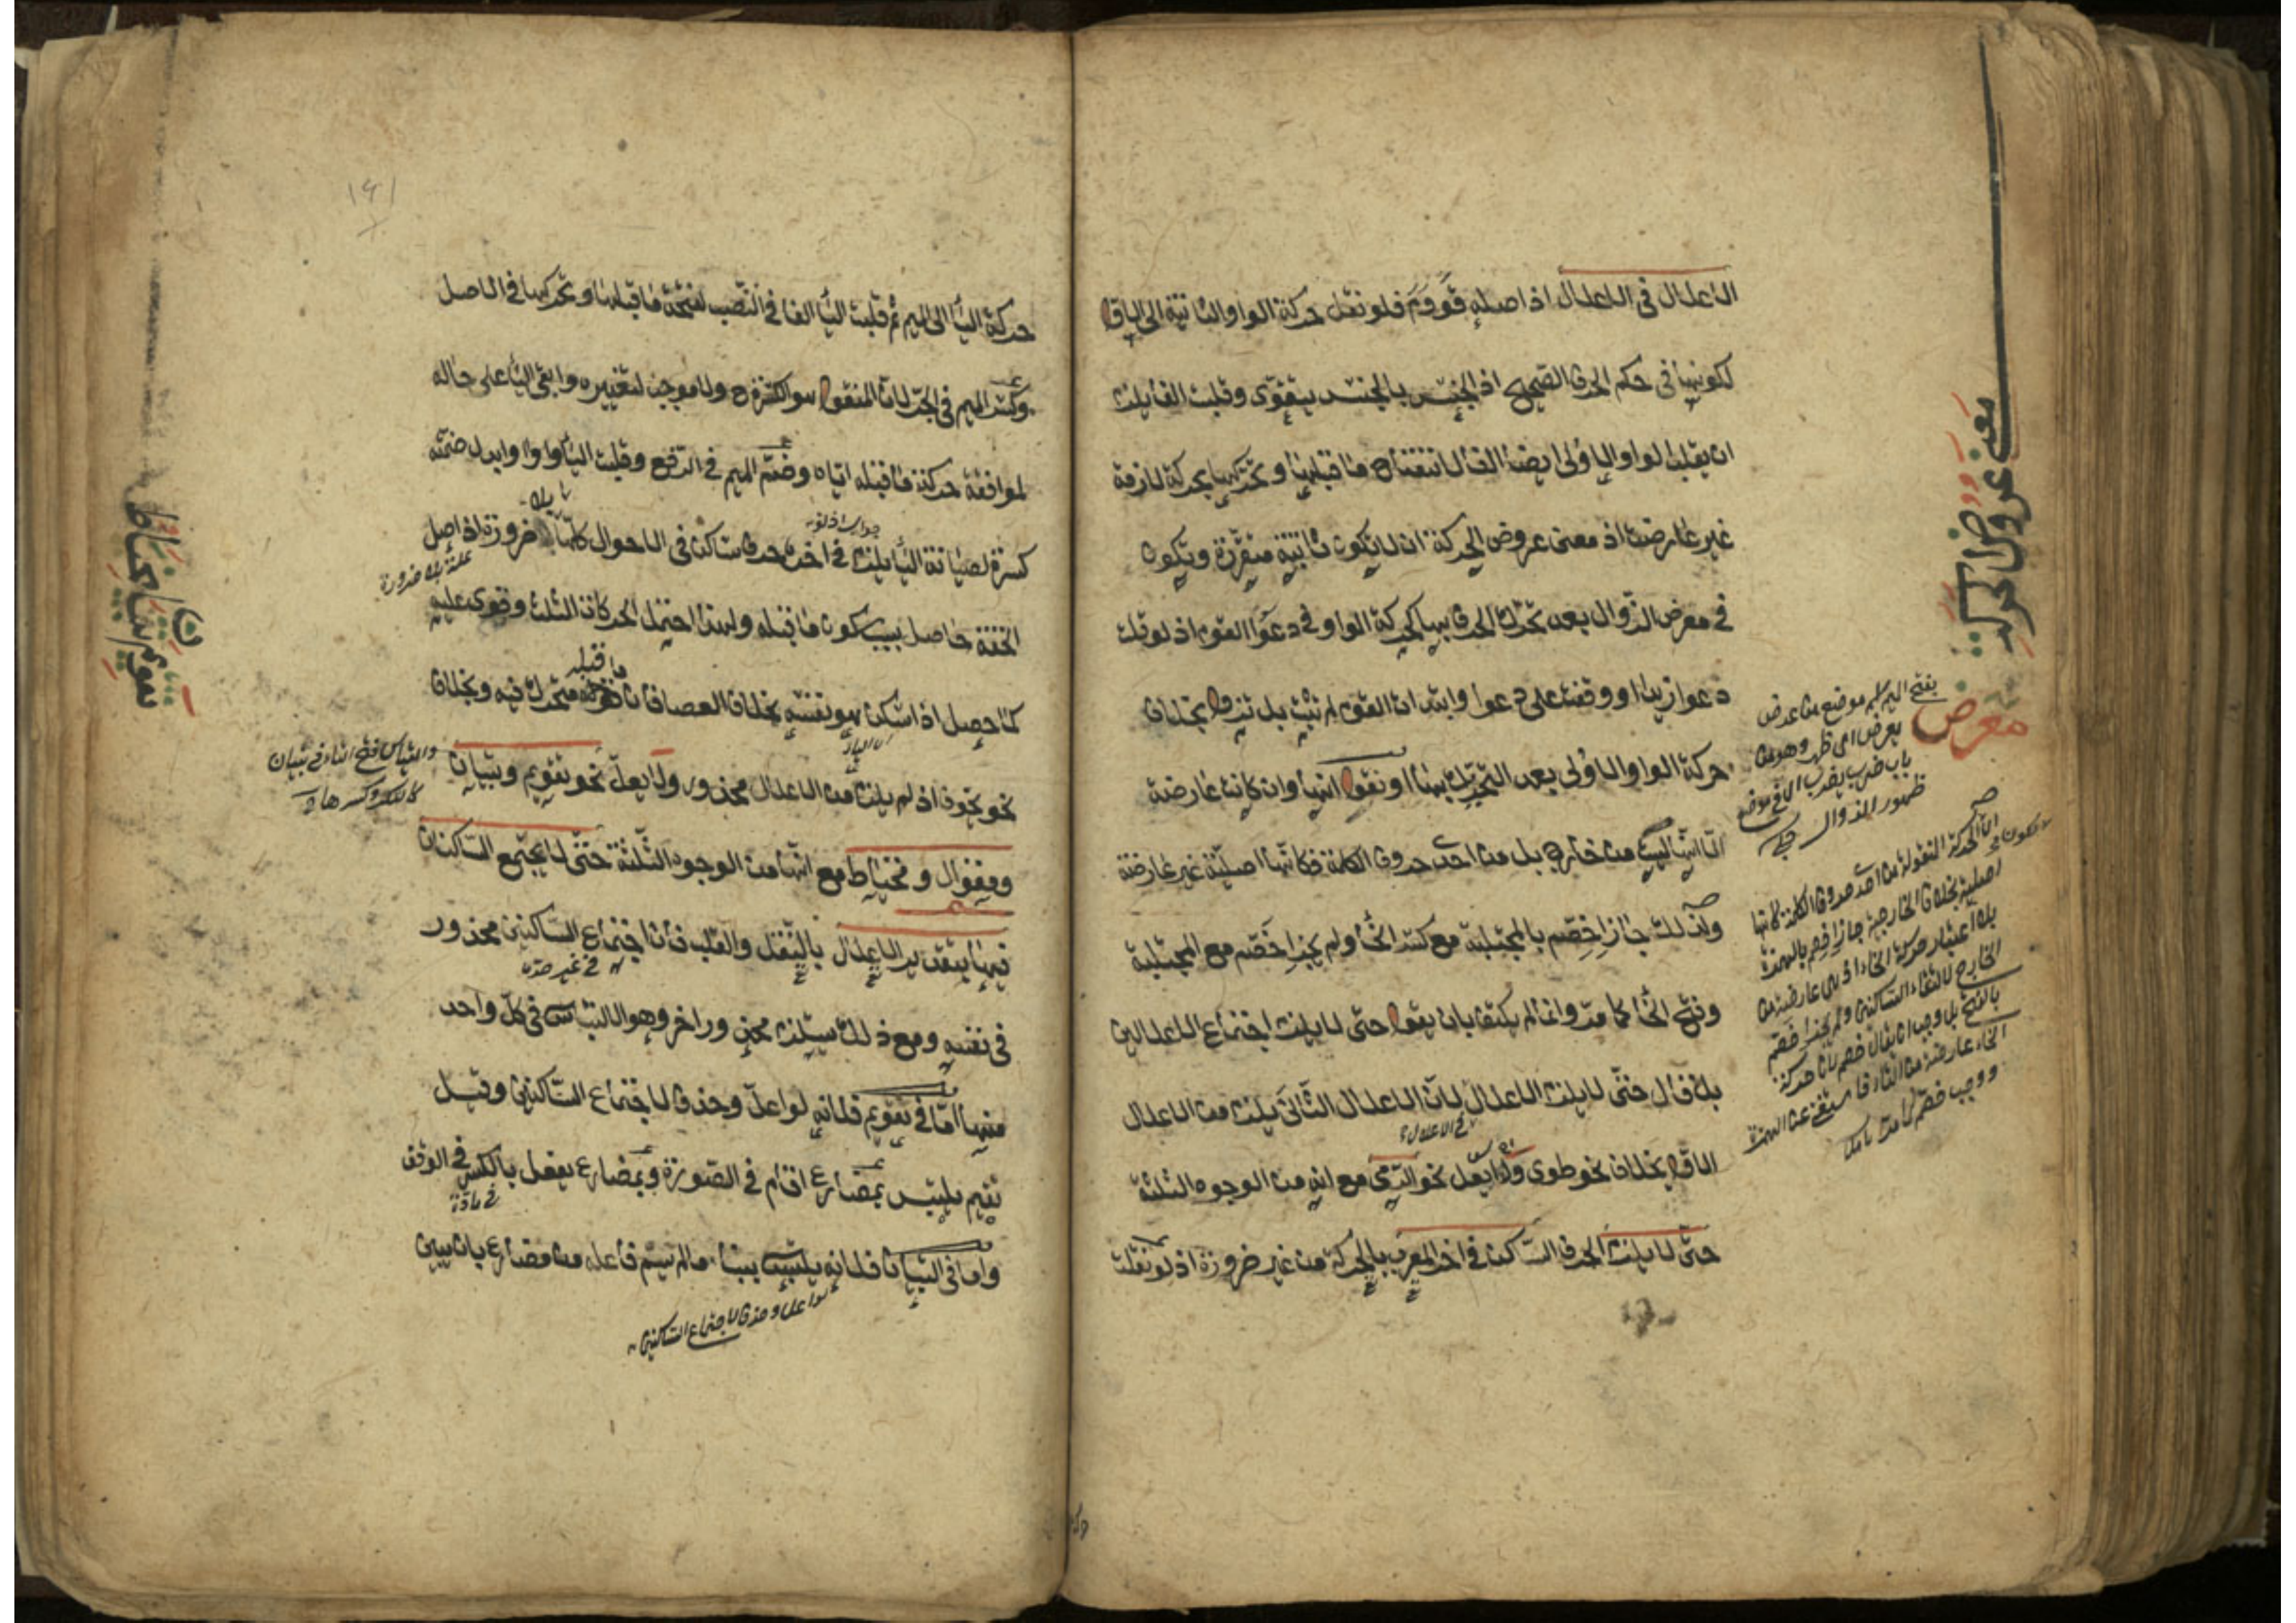 الاعلال في الاعلال اذ اصله قَوَوَم فلو نقل حركة الواو الثانية الى الاول
لكونها في حكم الحرف الصحيح اذ الجنس بالجنس يتقوى وقلبت الفا يلزم
ان يقلب الواو الاولى ايضا الفا لانفتاح ما قبلها وتحركها بحركة لازمة
غير عارضة اذ معنى عروض الحركة ان لا يكون ثابتة متقررة ويكون
في معرض الزوال بعد تحرك الحرف بها كحركة الواو في دعوا القوم اذ لو قلت
دعوا زيدا او وقفت على دعوا وابتدات القوم لم تثبت بل تزول بخلاف
حركة الواو الاولى بعد التحريك بها او نقول انها وان كانت عارضة
الا انها ليست من خارج بل من احدى حروف الكلمة فكانها اصلية غير عارضة
ولذلك جاز اخصم بالمجتلبة مع كسر الخاء ولم يجز اخصم مع المجتلبة
وفتح الخاء كما مر وانما لم يكتف بان يقول حتى لا يلزم اجتماع الاعلالين
بل قال حتى لا يلزم الاعلال لان الاعلال الثاني يلزم من الاعلال
في الاعلال
الاول بخلاف نحو طوى ولا يعل نحو الرمى مع انه من الوجوه الثلثة
حتى لا يلزم الحرف الساكن في اخر المعرب بالحركة من غير ضرورة اذ لو نقلت
معنى عروض الحركة
معرض
بفتح الميم موضع من عرض
يعرض اى ظهر وهو من
باب ضرب يضرب اى في موضع
ظهور الزوال
ان الحركة المنقولة من احدى حروف الكلمة كانها
اصلية بخلاف الخارجية جاز اخصم بالهمزة
بلا اعتبار حركة الخاء اذ هى عارضة من
الخارج لالتقاء الساكنين ولم يجز اخصم
بالفتح بل وجب ان يقال خصم لان حركة
الخاء عارضة من التاء فاستغنى عن الهمزة
ووجب خصم كما مر
١٤١
حركة الياء الى الميم ثم قلبت الياء الفا في النصب لفتحة ما قبلها وتحركها في الاصل
وكسر الميم في الجر لان المنقول هو الكسرة ولا موجب لتغييره وابقى الياء على حاله
لموافقة حركة ما قبله اياه وضم الميم في الرفع وقلبت الياء واوا وابدل ضمته
كسرة لصيانة الياء يلزم في اخره حرف ساكن في الاحوال كلها بلا ضرورة اذ اصل
جواب اذ لو
علة بلا ضرورة
الخفة حاصل بسبب سكون ما قبله ولهذا احتمل الحركات الثلث وقوى عليه
كما حصل اذا سكن هو نفسه بخلاف العصا فان ما قبله متحرك فيه وبخلاف
نحو يخوف اذ لم يلزم من الاعلال محذور ولا يعل نحو تقويم وتبيان
ومقوال ومخياط مع انها من الوجوه الثلثة حتى لا يجتمع الساكنان
فيها بتقدير الاعلال بالنقل والقلب فان اجتماع الساكنين محذور
في غير حده
في نفسه ومع ذلك يستلزم محذورا اخر وهو الالتباس في كل واحد
منها اما في تقويم فلانه لو اعل وحذف لاجتماع الساكنين وقيل
تقيم يلتبس بمضارع اقام في الصورة وبمضارع يفعل بالكسر في الوقف
واما في التبيان فلانه يلتبس ببناء ما لم يسم فاعله من مضارع بان يبين
لو اعل وحذف لاجتماع الساكنين
والقياس فتح التاء في تبيان
كالتكرار وكسرها